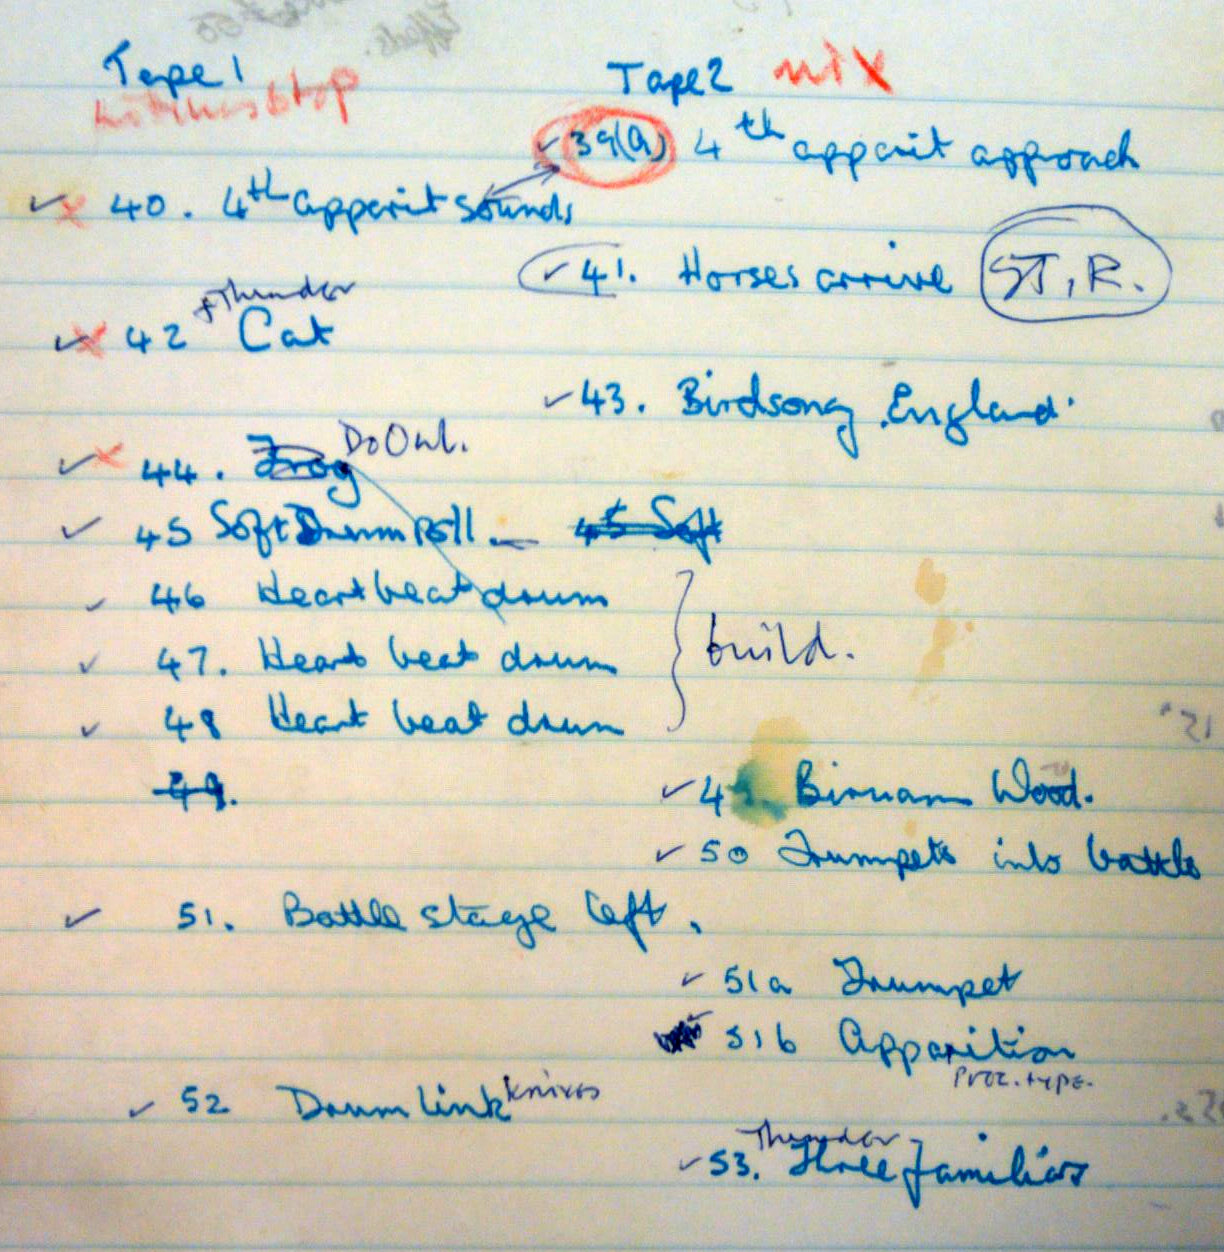 Tape 1
Tape 2 mix
39(a) 4th apparit approach
40. 4th apparit sounds
41. Horses arrive ST.R.
+ Thunder
42 Cat
43. Birdsong England.
44. Frog Do Owl.
45 Soft Drum roll. 45 Soft
46 Heart beat drum
47. Heart beat drum
build.
48 Heart beat drum
49.
49. Birnam Wood.
50 Trumpets into battle
51. Battle stage left.
51a Trumpet
51b Apparition
proc. type.
52 Drum link knives
Thunder
53. Three familiars